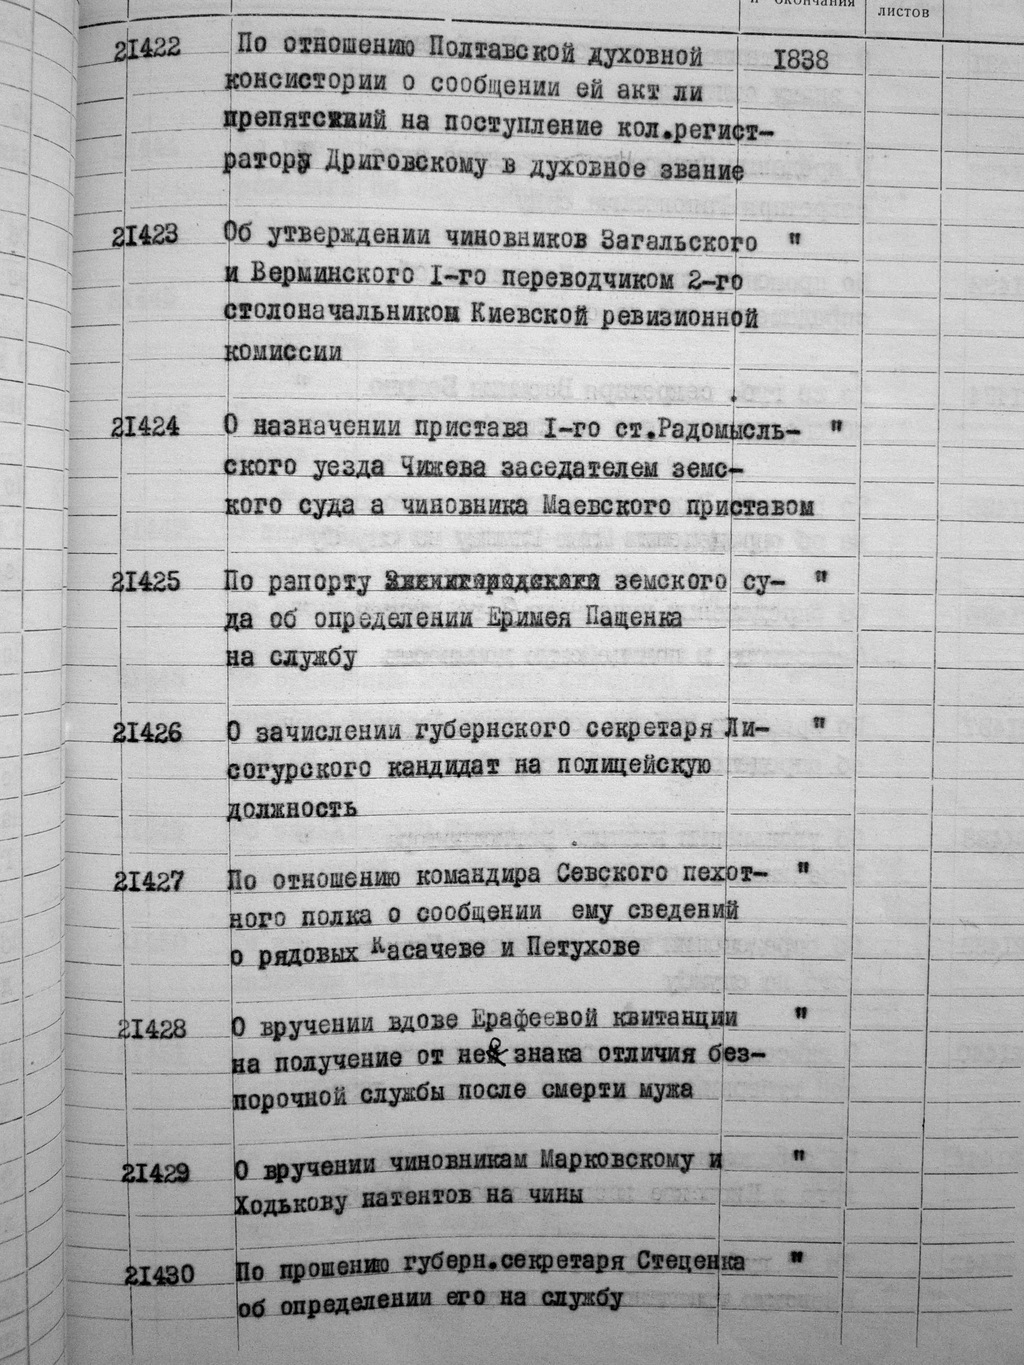 и окончания
листов
21422 По отношению Полтавской духовной 1838
консистории о сообщении ей акт ли
препятствий на поступление кол.регист-
ратору Дриговскому в духовное звание
21423 Об утверждении чиновников Загальского "
и Верминского I-го переводчиком 2-го
столоначальником Киевской ревизионной
комиссии
21424 О назначении пристава I-го ст.Радомысль- "
ского уезда Чижева заседателем земс-
кого суда а чиновника Маевского приставом
21425 По рапорту земского су- "
да об определении Еримея Пащенка
на службу
21426 О зачислении губернского секретаря Ли- "
согурского кандидат на полицейскую
должность
21427 По отношению командира Севского пехот- "
ного полка о сообщении ему сведений
о рядовых Касачеве и Петухове
21428 О вручении вдове Ерафеевой квитанции "
на получение от неё знака отличия без-
порочной службы после смерти мужа
21429 О вручении чиновникам Марковскому и "
Ходькову натентов на чины
21430 По прошению губерн.секретаря Стеценка "
об определении его на службу